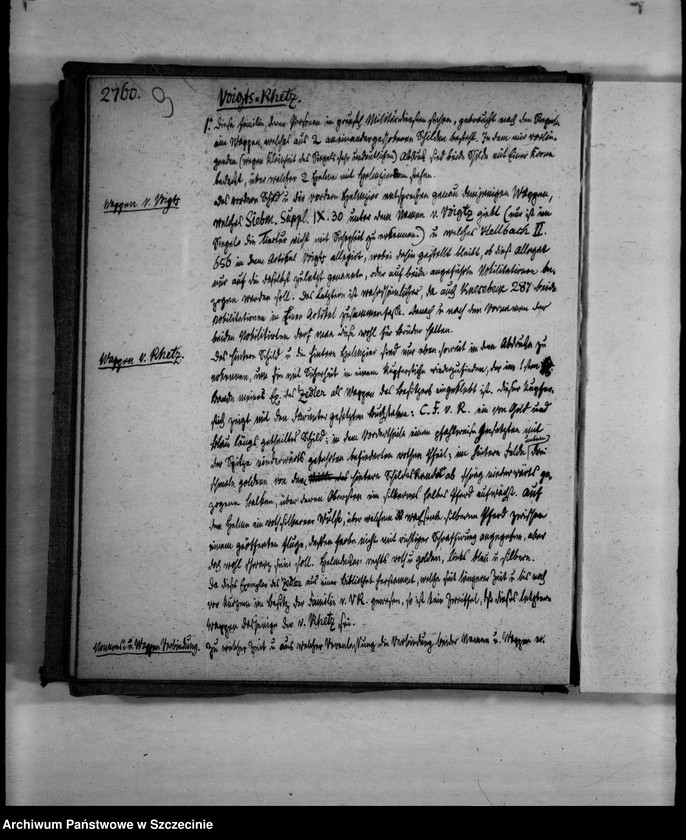 2760. 9)
Voigts-Rhetz.
1. Diese Familie, deren Personen in preuß. Militärdiensten stehen, gebraucht nach den Siegeln
ein Wappen, welches aus 2 aneinandergeschobenen Schilden besteht. In dem mir vorlie-
genden (wegen Kleinheit des Siegels sehr undeutlichen) Abdruck sind beide Schilde mit Einer Krone
bedeckt, über welcher 2 Helme mit Helmzierden stehen.
Wappen v. Voigts
Das vordere Schild u. die vordere Helmzier entsprechen genau demjenigen Wappen,
welches Siebm. Suppl. IX. 30 unter dem Namen v. Voigtz giebt (nur ist im
Siegel die Tinctur nicht mit Sicherheit zu erkennen.) u. welches Hellbach II.
656 in dem Artikel Voigts allegirt, wobei dahin gestellt bleibt, ob dieß Allegat
nur auf die daselbst zuletzt genannte, oder auf beide angeführte Nobilitationen be-
zogen werden soll. Das Letztere ist wahrscheinlicher, da auch Knesebeck 287 beide
Nobilitationen in Einen Artikel zusammenfaßt. Danach u. nach den Vornamen der
beiden Nobilitirten darf man diese wohl für Brüder halten.
Wappen v. Rhetz.
Das hintere Schild u. die hintere Helmzier sind nur eben soweit in dem Abdrucke zu
erkennen, um sie mit Sicherheit in einem Kupferstiche wiederzufinden, der im 1sten
Bande meines Ex. des Zedler als Wappen des Besitzers eingeklebt ist. Dieser Kupfer-
stich zeigt mit den darunter gesetzten Buchstaben: C. F. v. R. ein von Gold und
Blau längs getheiltes Schild; in dem Vordertheile einen pfahlweise gesetzten mit
der Spitze niederwärts gekehrten befiederten rothen Pfeil; im hintern Felde drei
schmale goldene von dem hintern Schildesrande ab schräg niederwärts ge-
zogene Balken, über deren Obersten ein silbernes halbes Pferd aufwächst. Auf
dem Helme ein roth-silberner Wulst, über welchem das wachsende silberne Pferd zwischen
einem geöffneten Fluge, dessen Farbe nicht mit richtiger Schraffirung angegeben, aber
doch wohl schwarz sein soll. Helmdecken: rechts roth u. golden, links blau u. silbern.
Da dieses Exemplar des Zedler aus einer Bibliothek herstammt, welche seit längerer Zeit u. bis noch
vor Kurzem im Besitz der Familie v. V.R. gewesen, so ist kein Zweifel, daß dieses letztere
Wappen dasjenige der v. Rhetz sei.
Namens- u. Wappen Verbindung.
Zu welcher Zeit u. aus welcher Veranlassung die Verbindung beider Namen u. Wappen er-
Archiwum Państwowe w Szczecinie